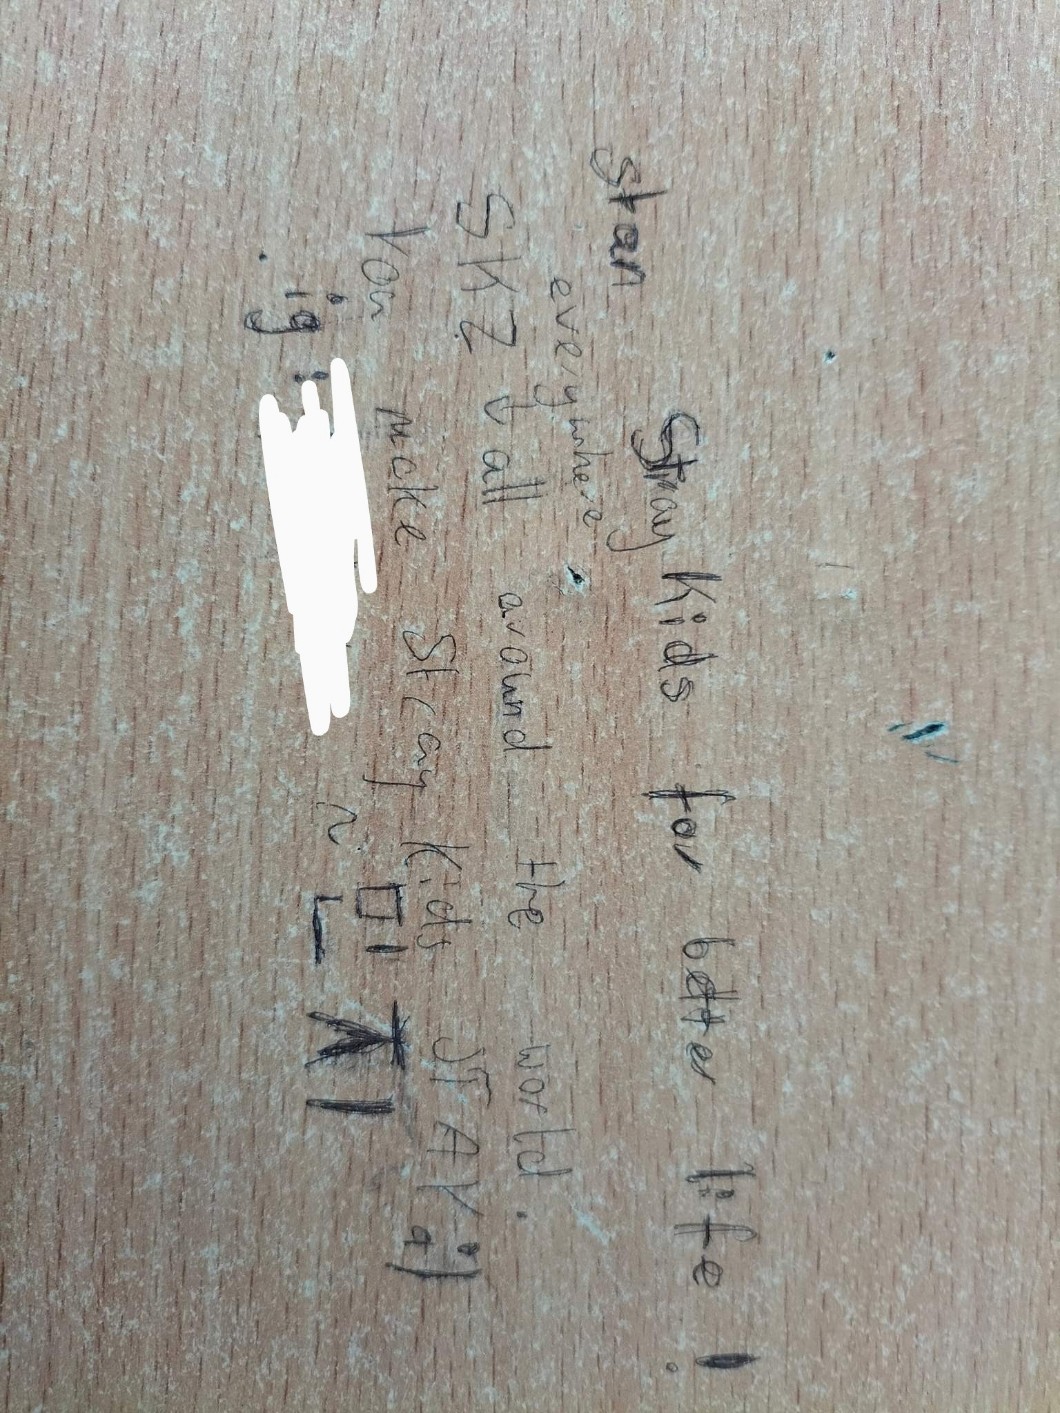 Stan Stray Kids for better life!
everywhere
SKZ all around the world.
You make Stray Kids STAY :)
ig:
~